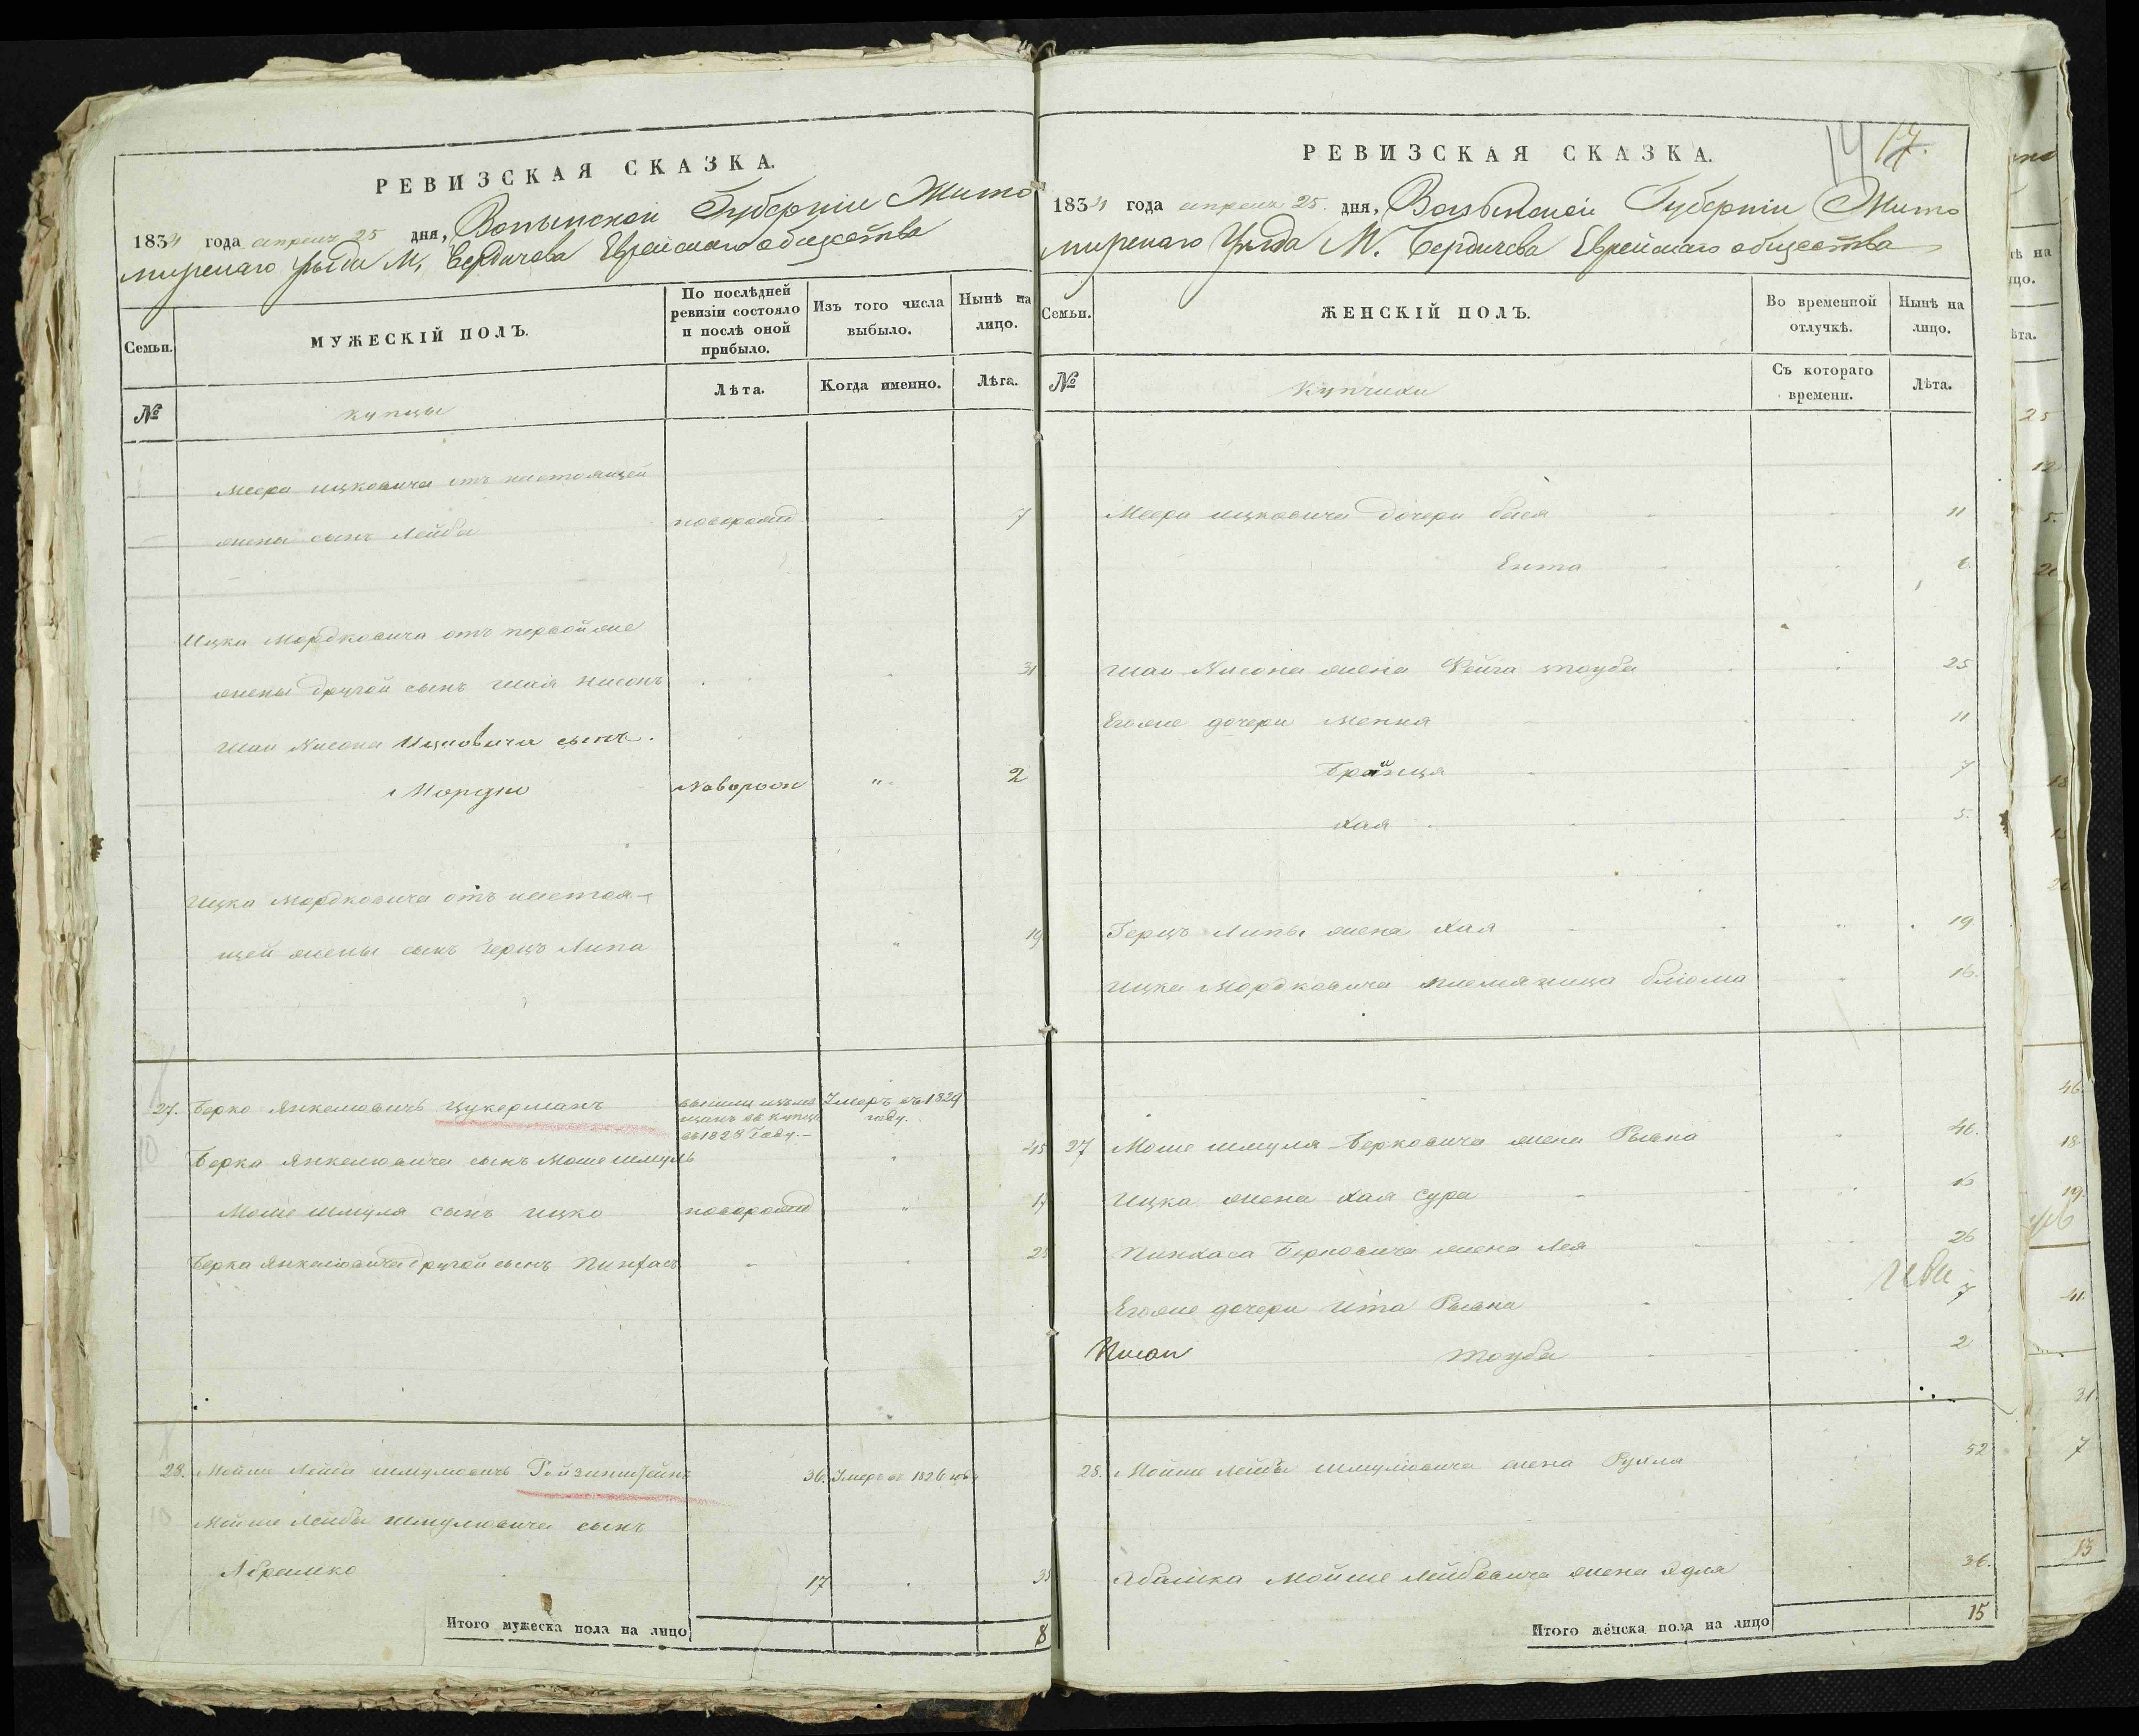 РЕВИЗСКАЯ СКАЗКА.
1834 года апреля 25 дня, Волынской Губернии Жито
мирскаго уезда М. Бердичева Еврейскаго общества
Семьи.
МУЖЕСКІЙ ПОЛЪ.
По послѣдней ревизіи состояло и послѣ оной прибыло.
Изъ того числа выбыло.
Нынѣ на лицо.
№
купцы
Лѣта.
Когда именно.
Лѣта.
Меера ицковича отъ настоящей
жены сынъ Лейба новорожд 7
Ицка Мордковича отъ первой же
жены другой сынъ шая нисонъ 31
шаи Нисона Ицковича сынъ
Мордко Новорож " 2
Ицка Мордковича отъ настоя-
щей жены сынъ Герцъ Липа " 19
27. Берко Янкелювичъ Цукерманъ
вышли изъ ме
щанъ въ купцы
въ 1828 Году.-
Умеръ въ 1829
году.
Берка Янкелювича сынъ Моше шмуль 45
Моше шмуля сынъ ицко новорожд " 17
Берка Янкелювича другой сынъ Пинхасъ 28
28. Мойше Лейба шмулювичъ Ройзинштейнъ 36. Умеръ въ 1826 году
Мойше Лейбы шмулювича сынъ
Абрамко 17 35
Итого мужеска пола на лицо 8
14 17.
РЕВИЗСКАЯ СКАЗКА.
1834 года апреля 25 дня, Волынской Губерніи Жито
мирскаго Уѣзда М. Бердичева Еврейскаго общества
Семьи.
ЖЕНСКІЙ ПОЛЪ.
Во временной отлучкѣ.
Нынѣ на лицо.
№
Купчихи
Съ котораго времени.
Лѣта.
Меера ицковича дочери бася 11
Ента 6
шаи Нисона жена Фейга тауба 25
Егоже дочери Менья 11
Брайнца 7
хая 5.
Герцъ Липы жена хая 19
ицка Мордковича племяница блюма 16.
27 Моше шмуля Берковича жена Рывка 46.
Ицка жена хая сура
Пинхаса Берковича жена Лея 26
Егоже дочери ита Рывка 7
тауба 2
28. Мойше Лейбы шмулювича жена Рухля 52
Абрамка Мойше Лейбовича жена Эдля 36.
Итого женска пола на лицо 15